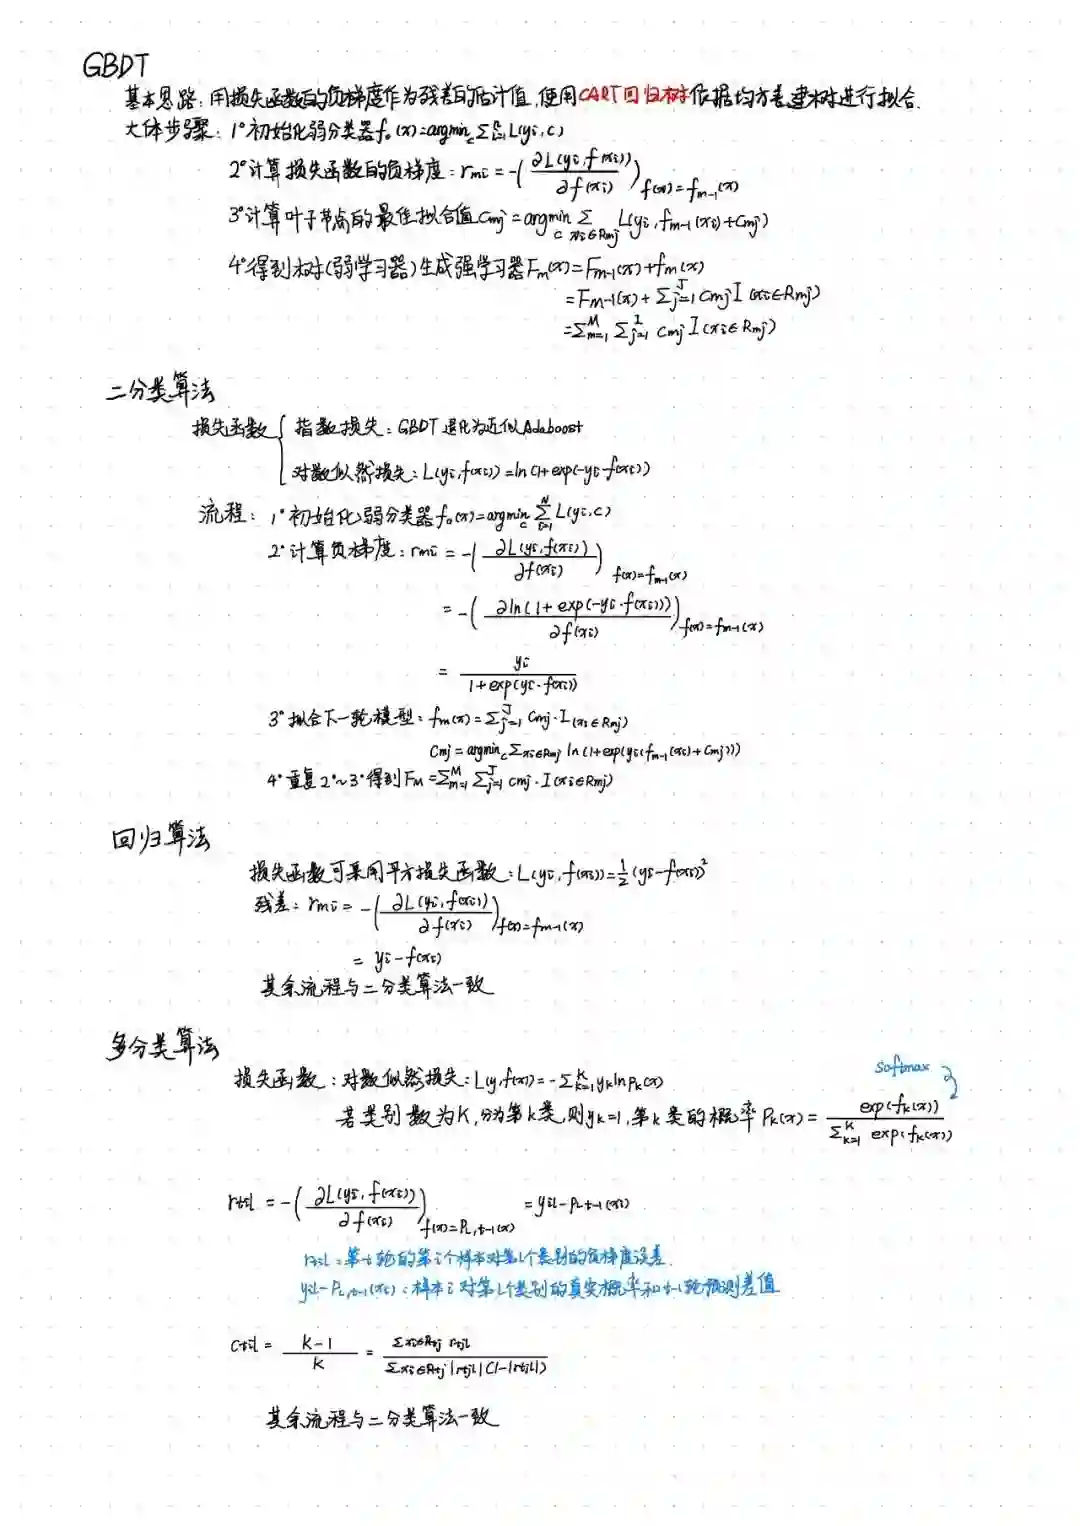 GBDT
基本思路：用损失函数的负梯度作为残差的估计值，使用CART回归树依据均方差建树进行拟合.
大体步骤：1°初始化弱分类器f₀(x)=argmin_c Σᵢ₌₁ⁿ L(yi,c)
2°计算损失函数的负梯度：rmi = -(∂L(yi,f(xi))/∂f(xi))f(x)=fm-1(x)
3°计算叶子节点的最佳拟合值Cmj = argmin_c Σxi∈Rmj L(yi,fm-1(xi)+Cmj)
4°得到树(弱学习器)生成强学习器Fm(x)=Fm-1(x)+fm(x)
=Fm-1(x)+Σⱼ₌₁ᴶ Cmj I(xi∈Rmj)
=Σm=1^M Σj=1^J Cmj I(xi∈Rmj)
二分类算法
损失函数{ 指数损失：GBDT退化为近似Adaboost
对数似然损失：L(yi,f(xi))=ln(1+exp(-yi·f(xi)))
流程：1°初始化弱分类器f₀(x)=argmin_c Σi=1^N L(yi,c)
2°计算负梯度：rmi = -(∂L(yi,f(xi))/∂f(xi))f(x)=fm-1(x)
= -(∂ln(1+exp(-yi·f(xi)))/∂f(xi))f(x)=fm-1(x)
= yi/(1+exp(yi·f(xi)))
3°拟合下一轮模型：fm(x)=Σj=1^J Cmj·I(xi∈Rmj)
Cmj=argmin_c Σxi∈Rmj ln(1+exp(yi(fm-1(xi)+Cmj)))
4°重复2°~3°得到FM=Σm=1^M Σj=1^J Cmj·I(xi∈Rmj)
回归算法
损失函数可采用平方损失函数：L(yi,f(xi))=½(yi-f(xi))²
残差：rmi = -(∂L(yi,f(xi))/∂f(xi))f(x)=fm-1(x)
= yi-f(xi)
其余流程与二分类算法一致
多分类算法
softmax
损失函数：对数似然损失：L(y,f(x))=-Σk=1^K yk ln Pk(x)
若类别数为K,分为第k类,则yk=1,第k类的概率Pk(x)=exp(fk(x))/Σk=1^K exp(fk(x))
rtil = -(∂L(yi,f(xi))/∂f(xi))f(x)=Pl,t-1(x) = yil-Pl,t-1(xi)
rtil：第t轮的第i个样本对第l个类别的负梯度误差.
yil-Pl,t-1(xi)：样本i对第l个类别的真实概率和t-1轮预测差值
Ctjl = (K-1)/K = Σxi∈Rtj rtjl/Σxi∈Rtj |rtjl|(1-|rtjl|)
其余流程与二分类算法一致